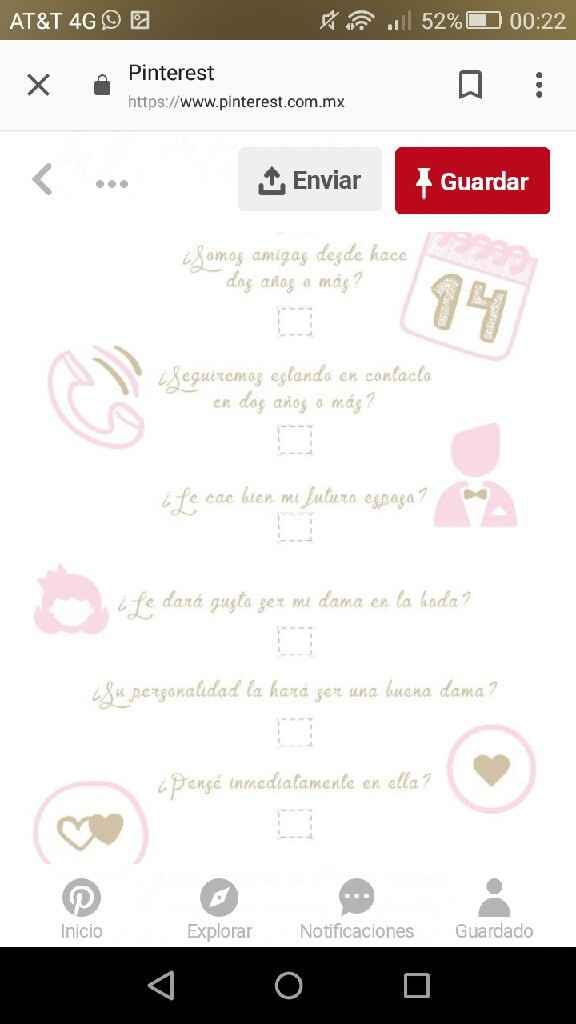 AT&T 4G 52% 00:22
Pinterest
https://www.pinterest.com.mx
Enviar Guardar
¿Somos amigas desde hace
dos años o más?
14
¿Seguiremos estando en contacto
en dos años o más?
¿Le cae bien mi futuro esposo?
¿Le dará gusto ser mi dama en la boda?
¿Su personalidad la hará ser una buena dama?
¿Pensé inmediatamente en ella?
Inicio Explorar Notificaciones Guardado